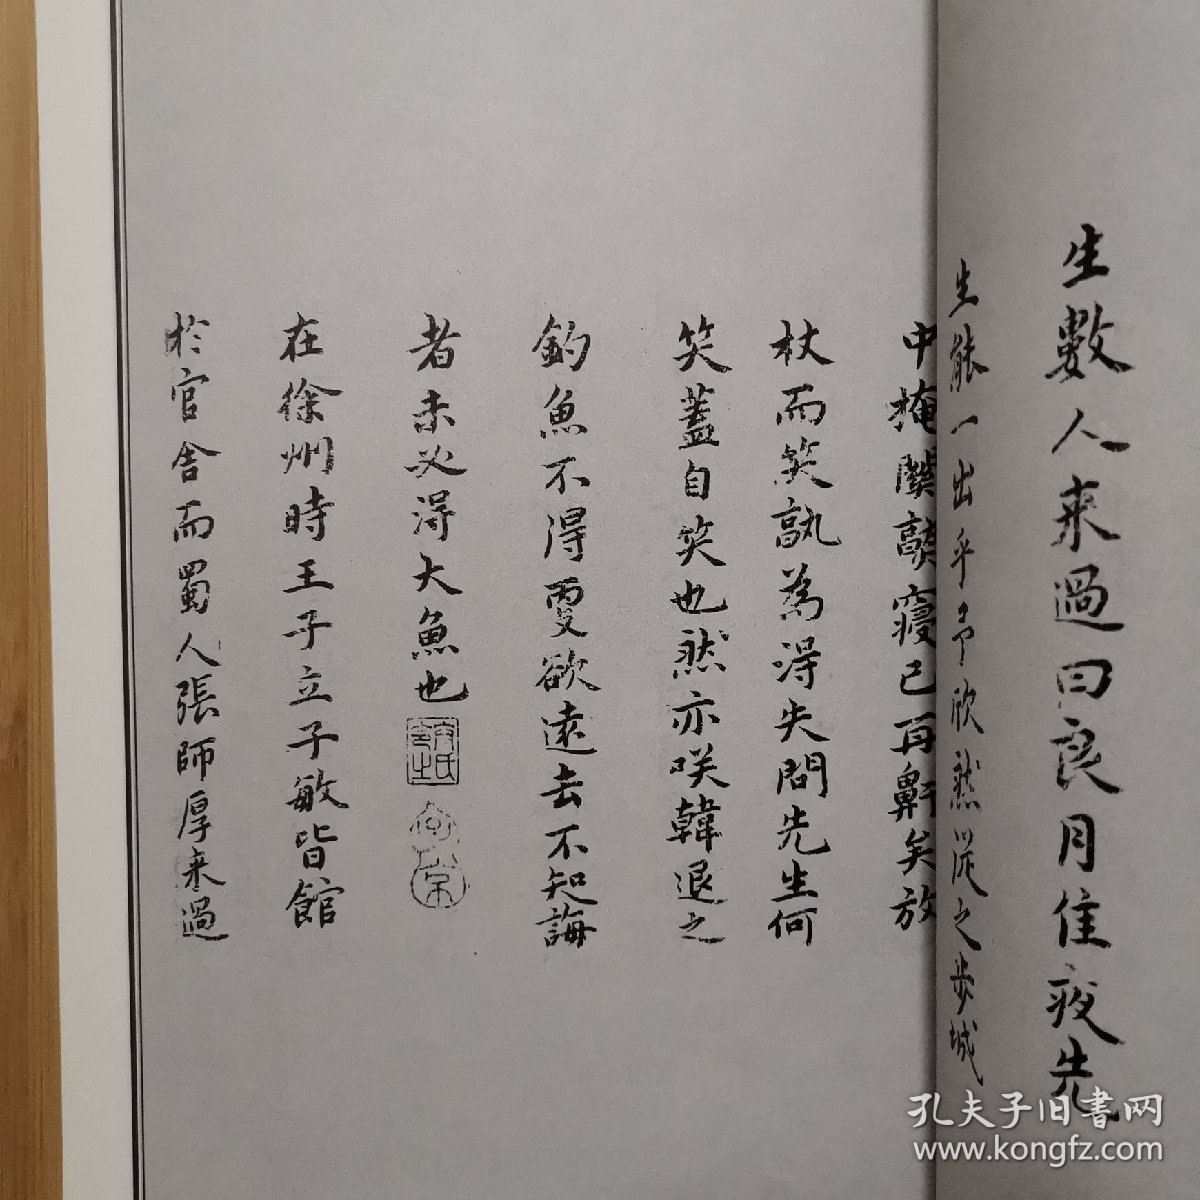 生數人来過曰良月佳夜先
生能一出乎予欣然從之步城
中掩關歊寢已再鼾矣放
杖而笑孰為得失問先生何
笑蓋自笑也然亦咲韓退之
釣魚不得更欲遠去不知海
者未必得大魚也
在徐州時王子立子敏皆館
於官舍而蜀人張師厚来過
孔夫子旧書网
www.kongfz.com